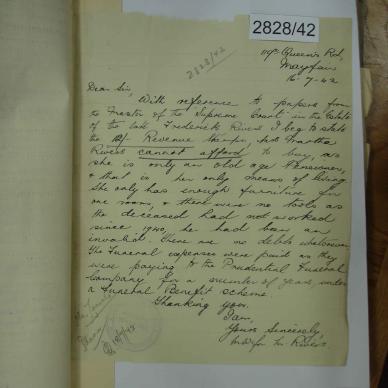 2828/42
2828/42
119 Queen's Rd,
Mayfair
16-7-42
Dear Sir,
With reference to papers from
the Master of the Supreme Court in the Estate
of the late Frederick Rivers I beg to state
the Revenue Martha
Rivers cannot afford to buy, as
she is only an old age Pensioner,
& that is her only means of living
She only has enough furniture for
one room, & there were no tools as
the deceased had not worked
since 1940, he had been an
invalid. There are no debts whatsoever
The Funeral expenses were paid as they
were paying to the Prudential Funeral
Company for a number of years, under
a Funeral Benefit scheme.
Thanking you.
I am,
Yours Sincerely
Rivers